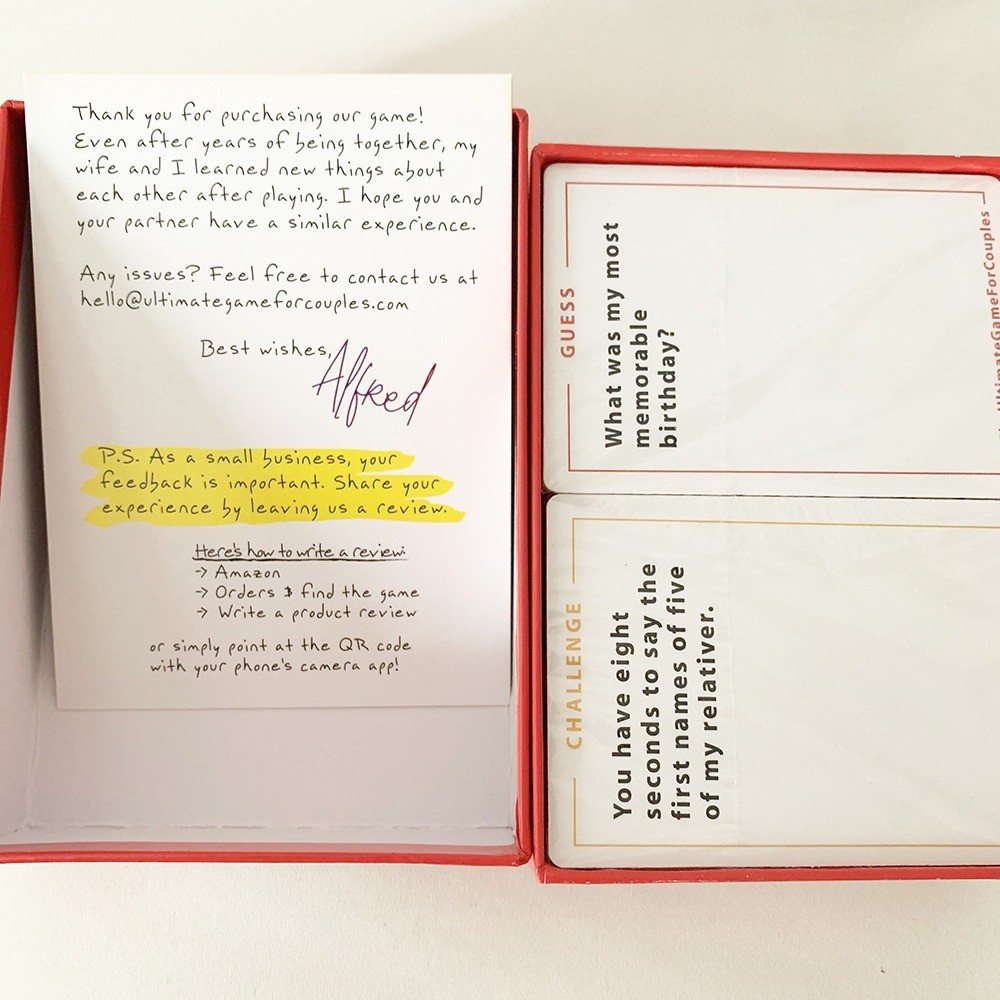 Thank you for purchasing our game!
Even after years of being together, my
wife and I learned new things about
each other after playing. I hope you and
your partner have a similar experience.
Any issues? Feel free to contact us at
hello@ultimategameforcouples.com
Best wishes,
Alfred
P.S. As a small business, your
feedback is important. Share your
experience by leaving us a review.
Here's how to write a review:
-> Amazon
-> Orders & find the game
-> Write a product review
or simply point at the QR code
with your phone's camera app!
GUESS
What was my most
memorable
birthday?
UltimateGameForCouples
CHALLENGE
You have eight
seconds to say the
first names of five
of my relativer.